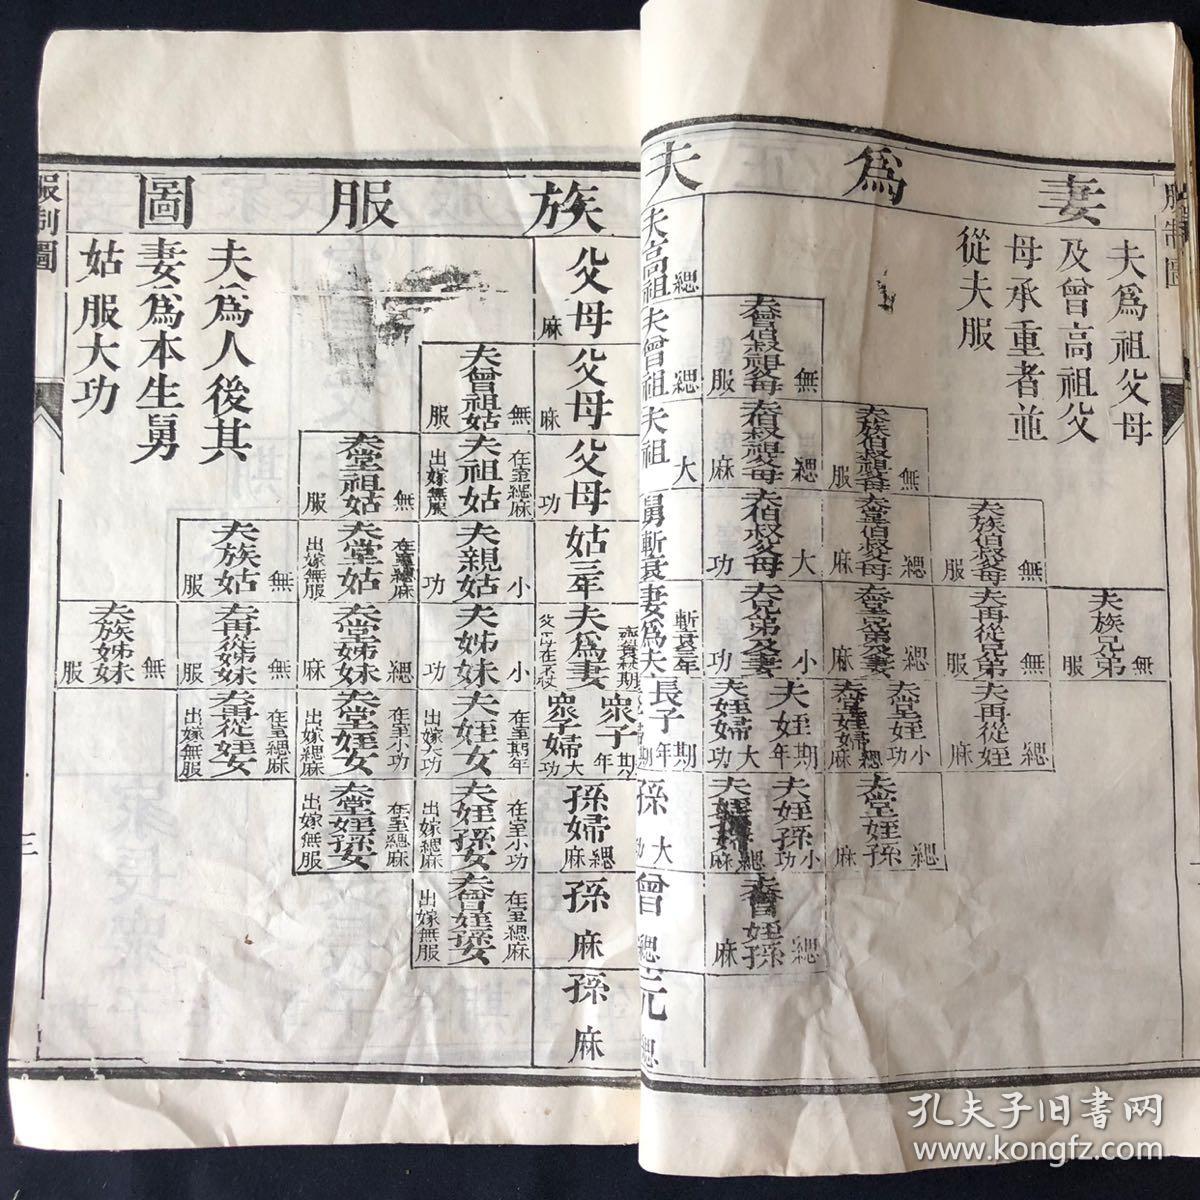 妻爲夫族服圖
服制圖
夫爲祖父母
及曾高祖父
母承重者並
從夫服
夫族兄弟
無服
夫族伯叔父母
無服
夫再從兄弟
無服
夫再從姪
緦麻
夫族伯叔祖父母
無服
夫堂伯叔父母
緦麻
夫堂兄弟及妻
緦麻
夫堂姪
小功
夫堂姪婦
緦麻
夫堂姪孫
緦麻
夫曾伯叔祖父母
無服
夫伯叔祖父母
緦麻
夫伯叔父母
大功
夫兄弟及妻
小功
夫姪
期年
夫姪婦
大功
夫姪孫
小功
緦麻
夫曾姪孫
緦麻
夫高祖父母
緦麻
夫曾祖父母
緦麻
夫祖父母
大功
舅姑
斬衰三年
妻爲夫
斬衰三年
夫爲妻
長子
期年
衆子
期年
衆子婦
大功
孫
大功
孫婦
緦麻
曾孫
緦麻
元孫
緦麻
夫曾祖姑
無服
夫祖姑
在室緦麻
出嫁無服
夫親姑
小功
夫姊妹
小功
夫姪女
在室期年
出嫁大功
夫姪孫女
在室小功
出嫁緦麻
夫曾姪孫女
在室緦麻
出嫁無服
夫堂祖姑
無服
夫堂姑
在室緦麻
出嫁無服
夫堂姊妹
緦麻
夫堂姪女
在室小功
出嫁緦麻
夫堂姪孫女
在室緦麻
出嫁無服
夫族姑
無服
夫再從姊妹
無服
夫再從姪女
在室緦麻
出嫁無服
夫族姊妹
無服
夫爲人後其
妻爲本生舅
姑服大功
服制圖
三
孔夫子旧书网
www.kongfz.com